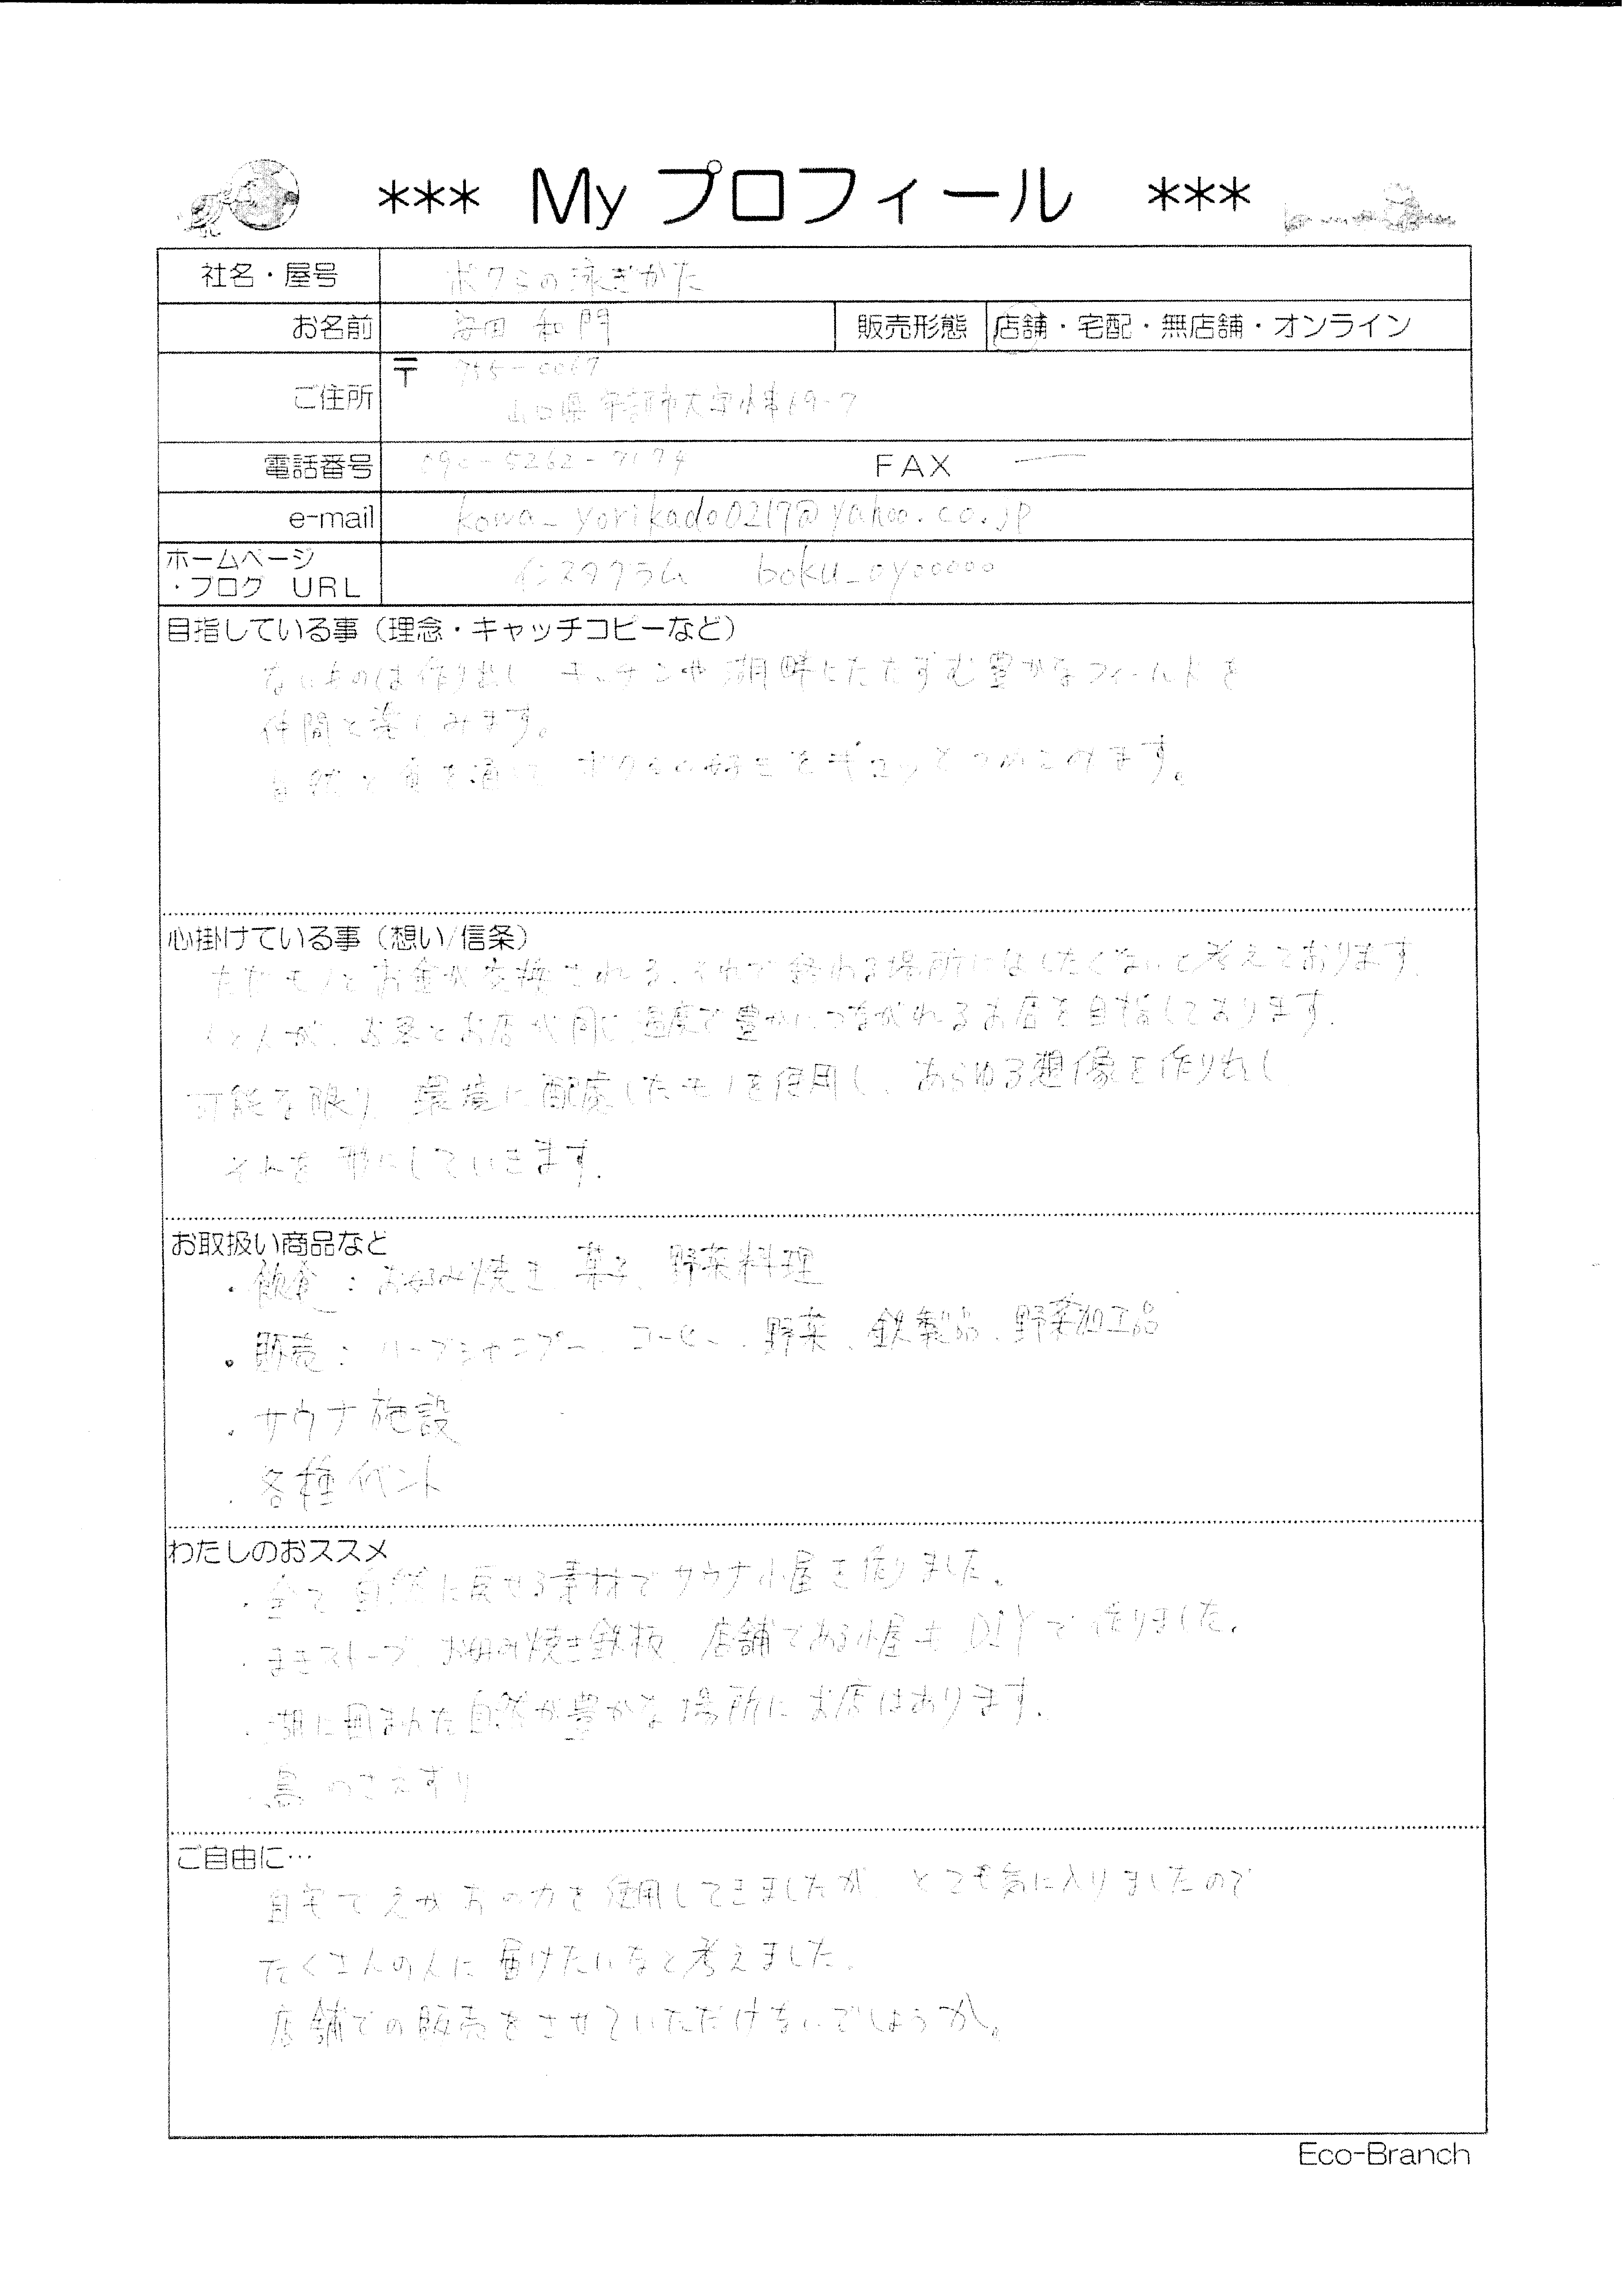 *** My プロフィール ***
社名・屋号 ボクらの泳ぎかた
お名前 和門 販売形態 店舗・宅配・無店舗・オンライン
ご住所 〒 755-0067
山口県宇部市大字小串69-7
電話番号 090-5262-7174 FAX ー
e-mail kowa_yorikado0217@yahoo.co.jp
ホームページ
・ブログ URL インスタグラム boku_oyooooo
目指している事(理念・キャッチコピーなど)
ないものは作り出し キッチンや湖畔にたたずむ豊かなフィールドを
仲間と楽しみます。
自然と食を通じ ボクらの好きをギュッとつめこめます。
心掛けている事(想い/信条)
ただモノとお金が交換される、それで終わる場所にはしたくないと考えております。
人と人が、お客とお店が同じ温度で豊かにつながれるお店を目指しております。
可能な限り 環境に配慮したモノを使用し、あらゆる想像を作り出し
それを形にしていきます。
お取扱い商品など
・飲食:お好み焼き、菓子、野菜料理
・販売:ソープシャンプー、コーヒー、野菜、鉄製品、野菜加工品
・サウナ施設
・各種イベント
わたしのおススメ
・全て自然に戻せる素材でサウナ小屋を作りました。
・まきストーブ、お好み焼き鉄板、店舗である小屋もDIYで作りました。
・湖に囲まれた自然が豊かな場所にお店はあります。
・鳥のさえずり
ご自由に…
自宅でえがおの力を使用してきましたが、とても気に入りましたので
たくさんの人に届けたいなと考えました。
店舗での販売をさせていただけないでしょうか。
Eco-Branch